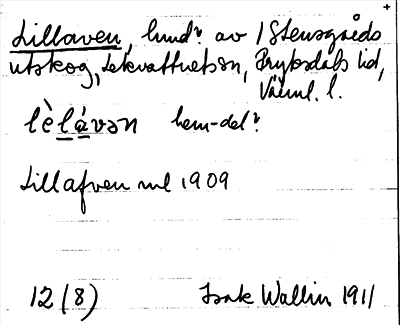 Lillaven, hmd? av 1 Stensgårds
utskog, Lekvattnets sn, Fryksdals hd,
Värml. l.
lèlávən hem-del?
Lillafven ml 1909
12 (8) Isak Wallin 1911